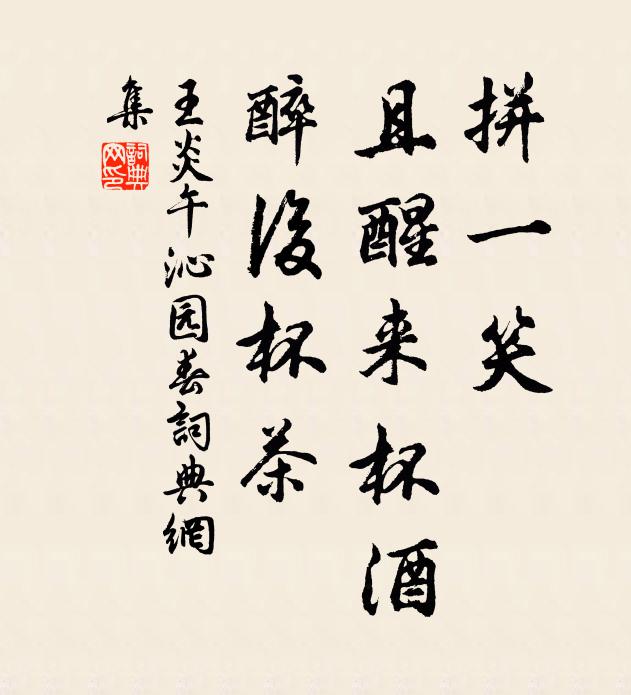 拼一笑
且醒来杯酒
醉後杯茶
王炎午沁园春詞典網
集
詞典
网印